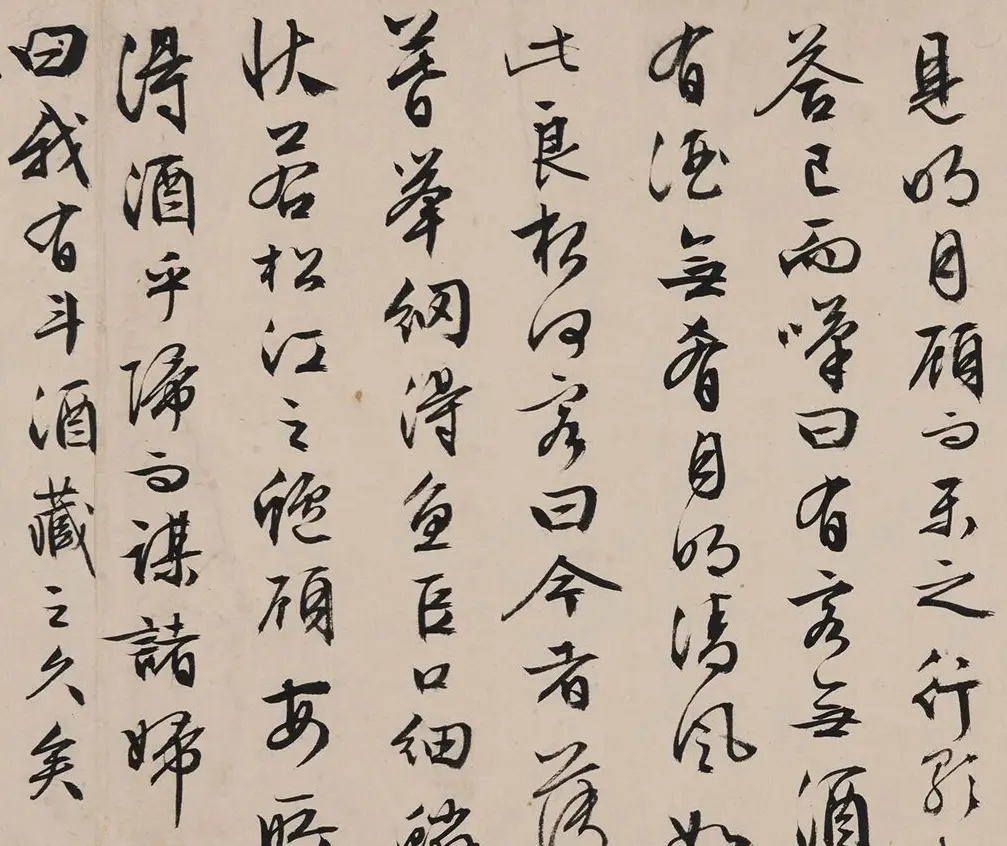 見明月顧而樂之行歌
答已而嘆曰有客無酒
有酒無肴月明清風如
此良何客曰今者薄
暮舉網得魚巨口細鱗
狀若松江之鱸顧安所
得酒乎歸而謀諸婦
曰我有斗酒藏之久矣